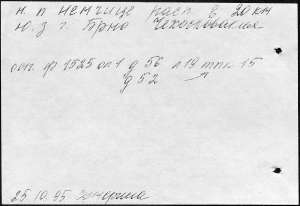 н. п. Ненчице расп. в 20 км
ю. з. г. Брно Чехословакия
осн. ф 1525 оп 1 д 56 л 19 тпк 15
д 52
25. 10. 95